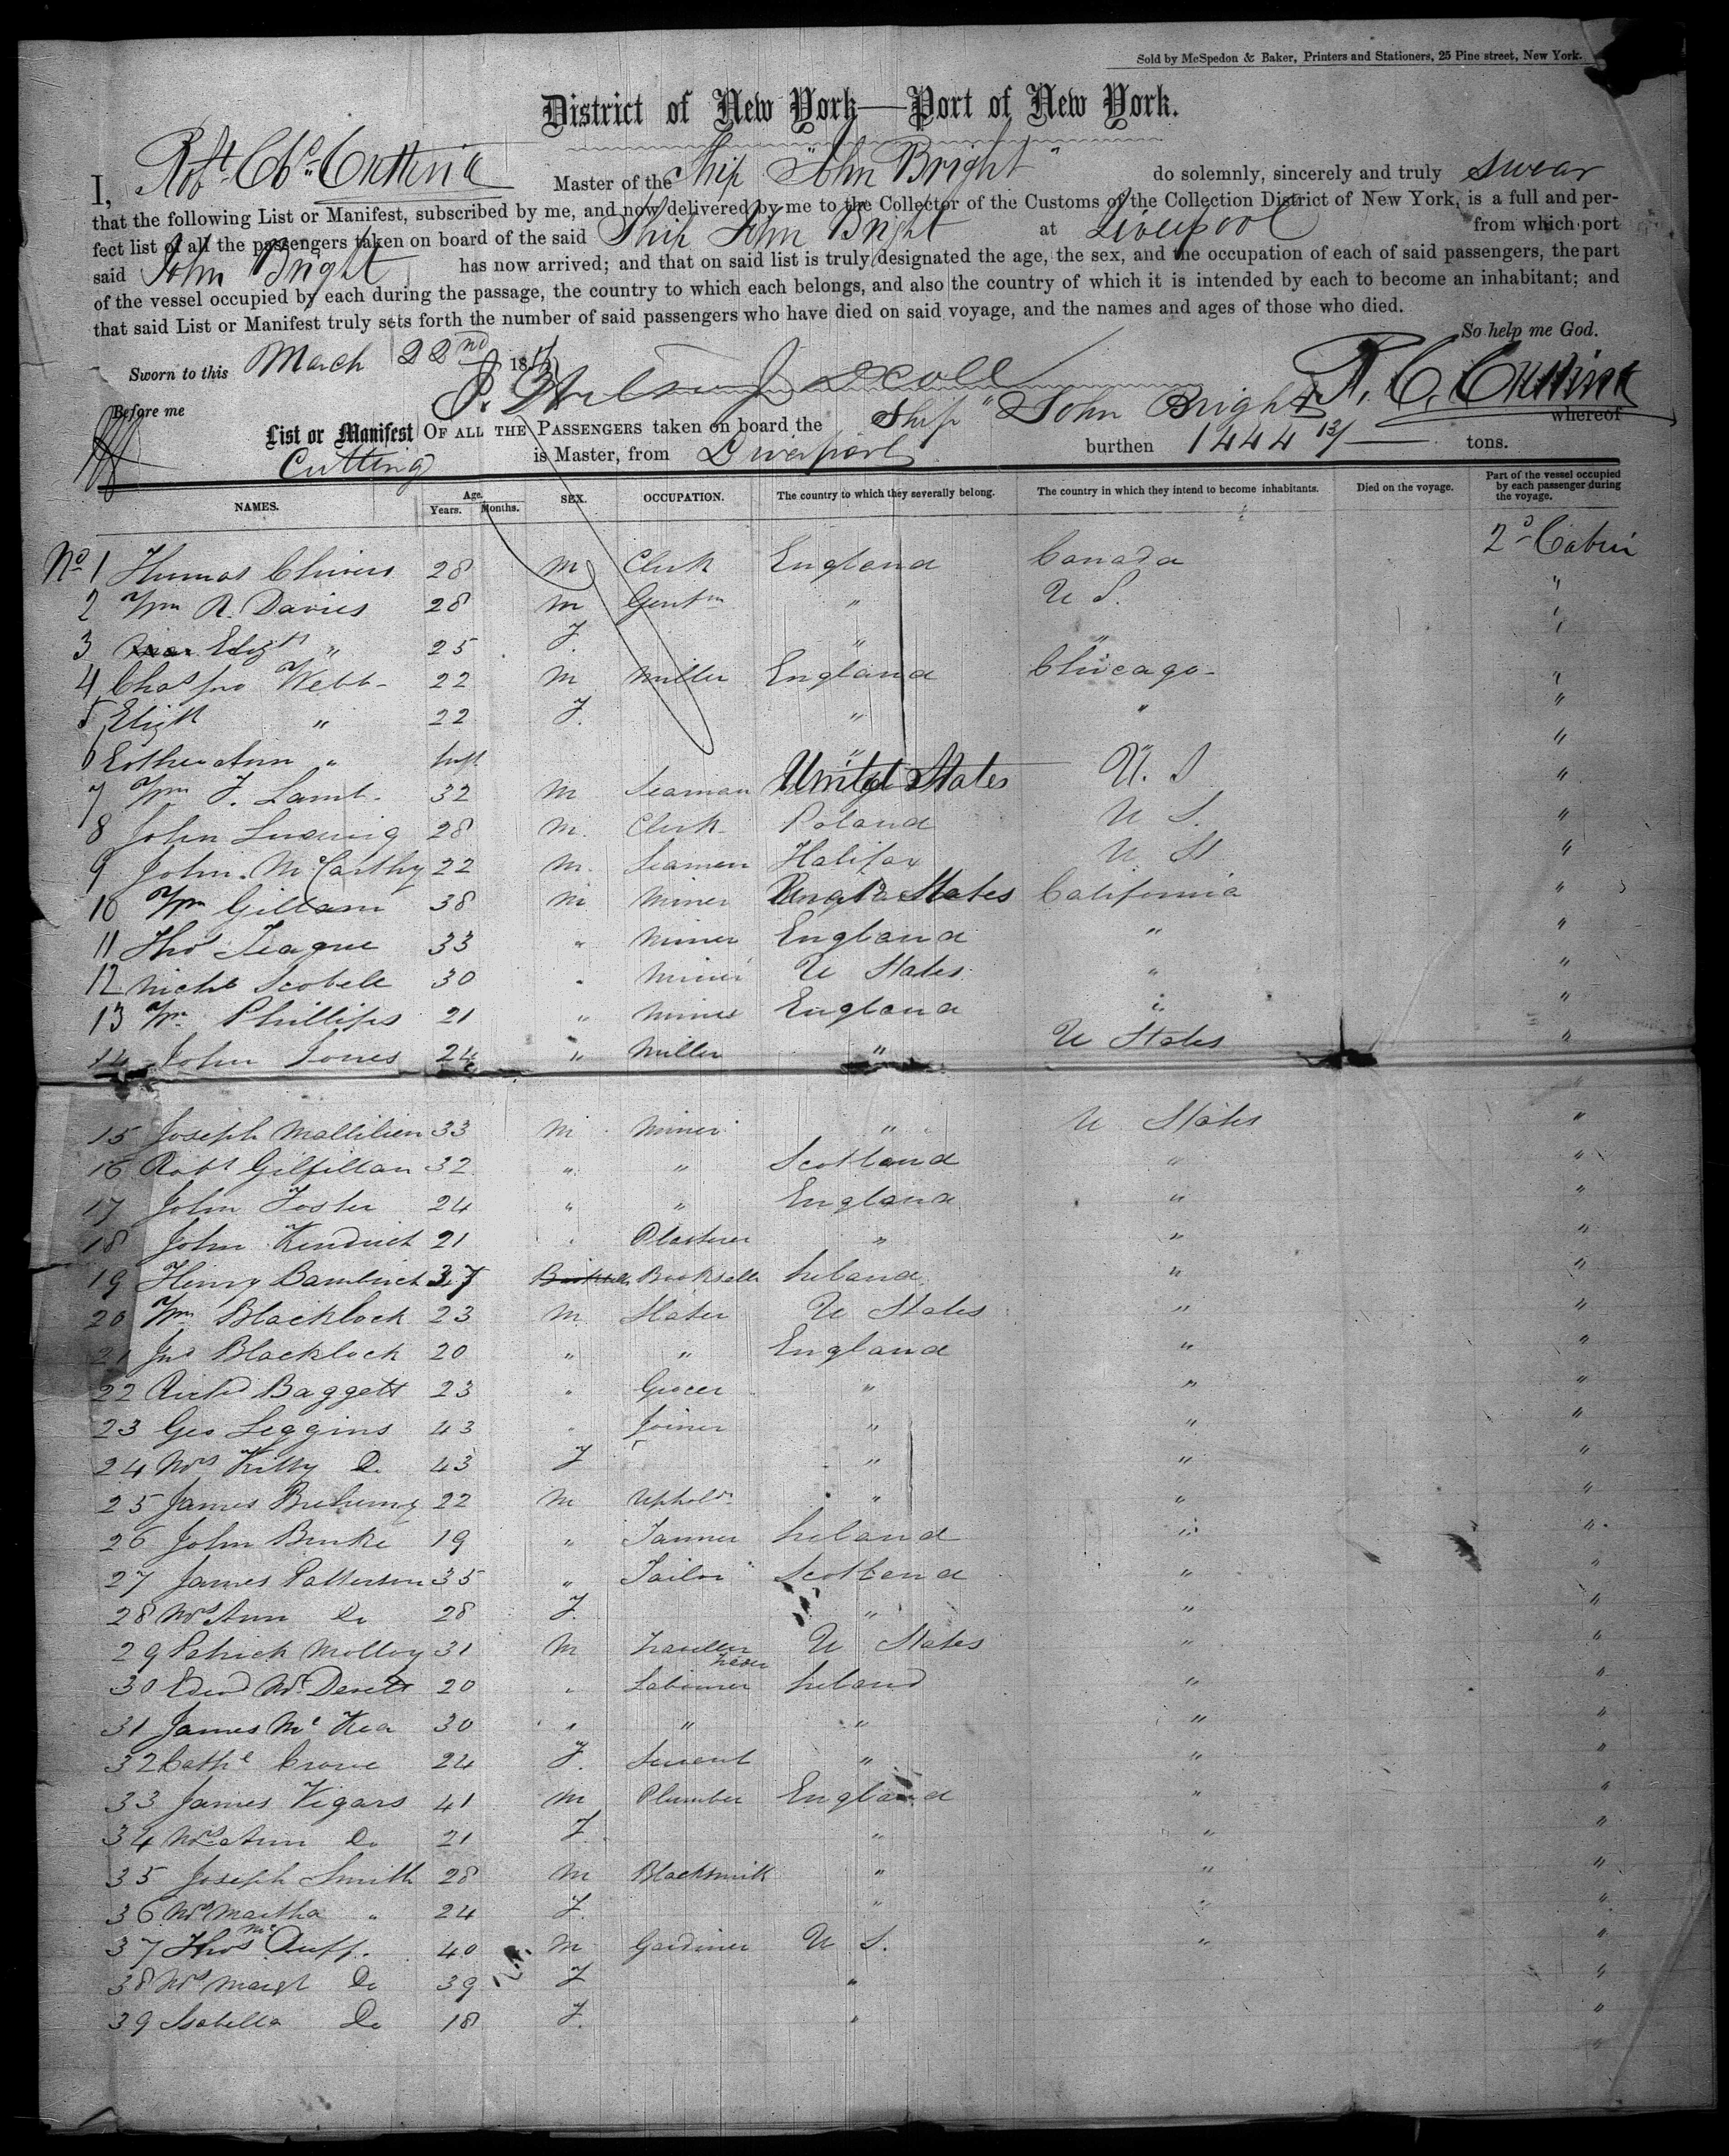 Sold by McSpedon & Baker, Printers and Stationers, 25 Pine street, New York.
District of New York—Port of New York.
I, Robt. Cutting Master of the Ship "John Bright" do solemnly, sincerely and truly swear
that the following List or Manifest, subscribed by me, and now delivered by me to the Collector of the Customs of the Collection District of New York, is a full and per-
fect list of all the passengers taken on board of the said Ship John Bright at Liverpool from which port
said John Bright has now arrived; and that on said list is truly designated the age, the sex, and the occupation of each of said passengers, the part
of the vessel occupied by each during the passage, the country to which each belongs, and also the country of which it is intended by each to become an inhabitant; and
that said List or Manifest truly sets forth the number of said passengers who have died on said voyage, and the names and ages of those who died.
So help me God.
Sworn to this March 22nd 18 R. C. Cutting
Before me
List or Manifest OF ALL THE PASSENGERS taken on board the Ship "John Bright" whereof
Cutting is Master, from Liverpool burthen 1444 tons.
NAMES. Age. Years. Months. SEX. OCCUPATION. The country to which they severally belong. The country in which they intend to become inhabitants. Died on the voyage. Part of the vessel occupied by each passenger during the voyage.
No 1 Thomas Chivers 28 M Clerk England Canada 2d Cabin
2 Wm R. Davies 28 m Gentm " U S. "
3 Elizth " 25 F. " " "
4 Chas Jno Webb 22 m Miller England Chicago "
5 Elizth " 22 F. " " "
6 Esther Ann " Inft " " "
7 Wm F. Lamb 32 m Seaman United States U. S "
8 John 28 m. Clerk Poland U S. "
9 John McCarthy 22 m. Seaman Halifax U St "
10 Wm Gillam 38 m Miner States California "
11 Thos Teague 33 " Miner England " "
12 Nichs Scobell 30 " Miner U States " "
13 Wm Phillips 21 " Miner England " "
14 John Jones 24 " Miller " U States "
15 Joseph 33 m Miner " U States "
16 Robt Gilfillan 32 " " Scotland " "
17 John Foster 24 " " England " "
18 John Kendrick 21 " Plasterer " " "
19 Henry 37 Booksellr Ireland " "
20 Wm Blacklock 23 m Slater U States " "
21 Jno Blacklock 20 " " England " "
22 Richd Baggett 23 " Grocer " " "
23 Geo Leggins 43 " Joiner " " "
24 Mrs Kitty Do 43 F " " "
25 James 22 m Uphold " " "
26 John Burke 19 " Tanner Ireland " "
27 James Patterson 35 " Tailor Scotland " "
28 Mrs Ann Do 28 F. " " "
29 Patrick Molloy 31 m U States " "
30 Edwd 20 " Labourer Ireland " "
31 James McKea 30 " " " " "
32 Cathe Crowe 24 F. Servant " " "
33 James Vigars 41 m Plumber England " "
34 Mrs Ann Do 21 F. " " "
35 Joseph Smith 28 m Blacksmith " " "
36 Mrs Martha " 24 F. " " "
37 Thos Mc Duff 40 m Gardiner U S. " "
38 Mrs Margt Do 39 F " "
39 Isabella Do 18 F. " "